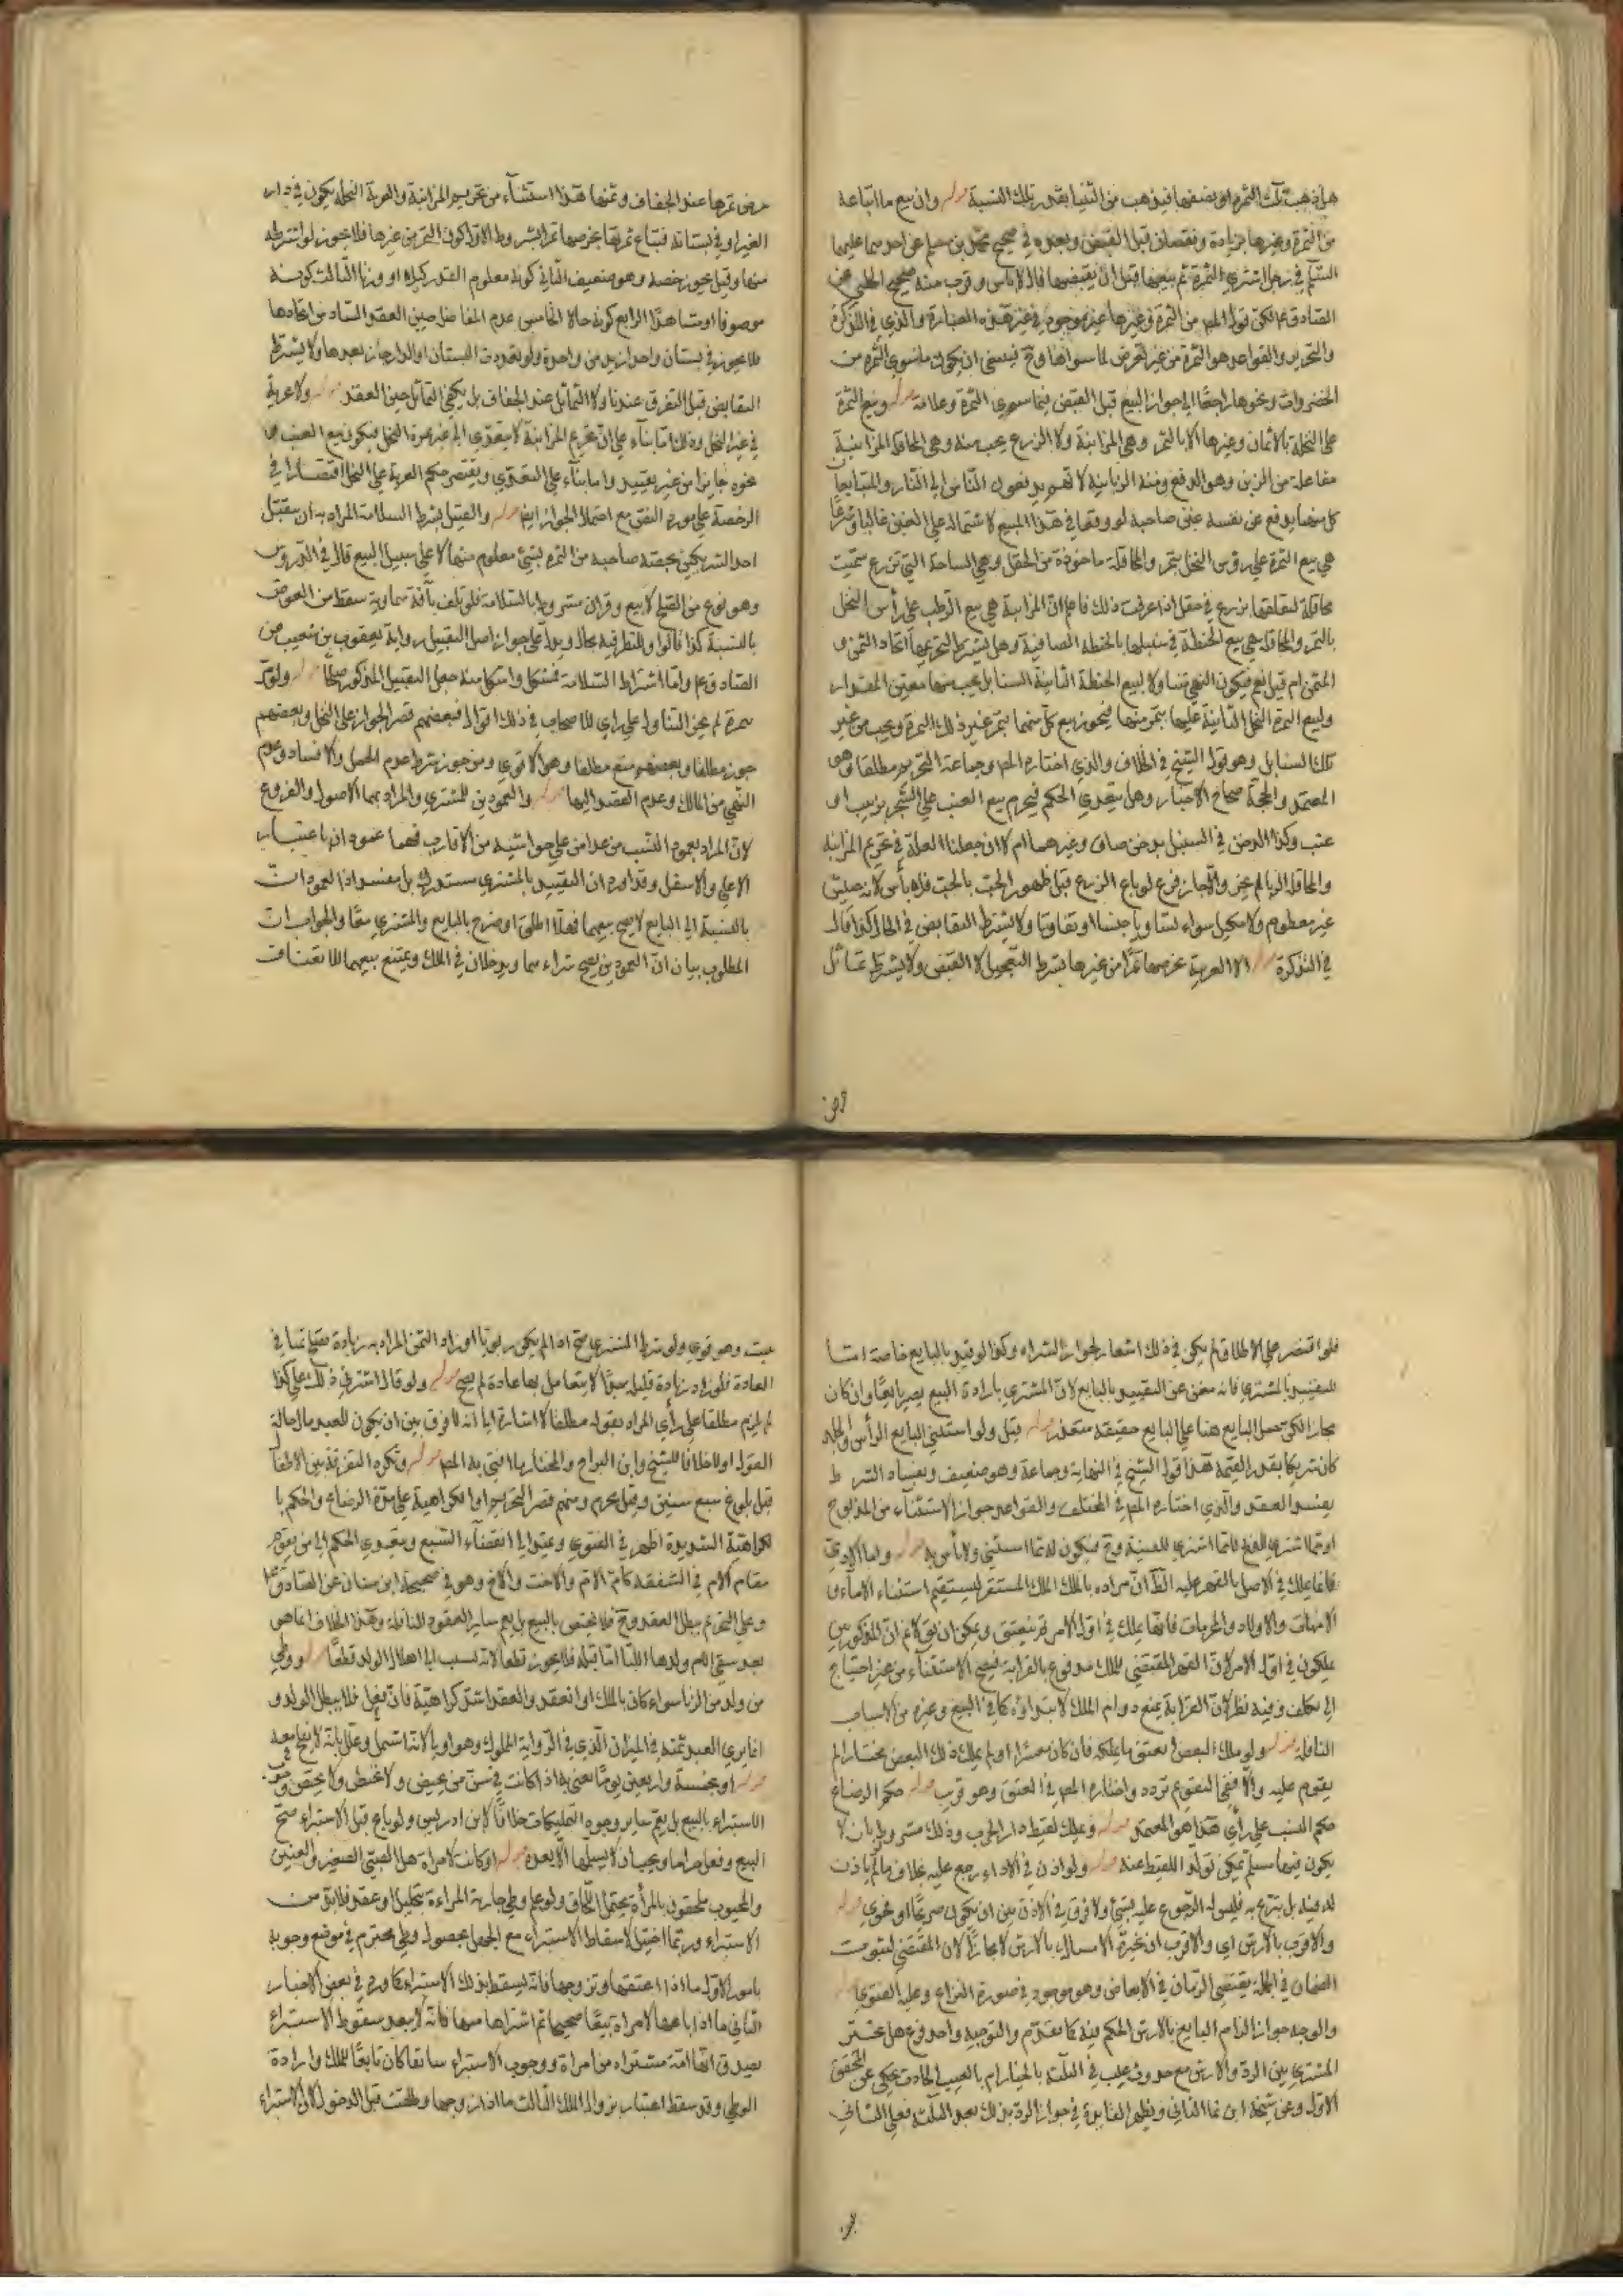 هل ذهبت تلك الثمرة او بعضها فيذهب من الثنيا بقدر تلك النسبة قوله وان بيع ما ابتاعه
من الثمرة وغيرها بزيادة ونقصان قبل القبض وبعده في صحيح محمد بن مسلم عن احدهما عليهما
السلم في رجل اشترى الثمرة ثم يبيعها قبل ان يقبضها قال لا باس وقرب منه صحيح الحلبي عن
الصادق ع لكن قول المص من الثمرة وغيرها غير موجود في غير هذه العبارة والذي في التذكرة
والتحرير والقواعد هو الثمرة من غير تعرض لما سواها وح فينبغي ان يكون ما سوى الثمرة من
الخضروات ونحوها راجعا الى جواز البيع قبل القبض فيما سوى الثمرة وعدمه قوله وبيع الثمرة
على النخلة بالاثمان وغيرها الا بالثمر وهي المزابنة ولا الزرع بحب منه وهي المحاقلة المزابنة
مفاعلة من الزبن وهو الدفع ومنه الزبانية لانهم يدفعون الناس الى النار والمتبايعان
كل منهما يدفع عن نفسه عين صاحبه لو وقعا في هذا المبيع لاشتماله على الغبن غالبا وشرعا
هي بيع الثمرة على رؤس النخل بتمر والمحاقلة ماخوذة من الحقل وهي الساحة التي تزرع سميت
محاقلة لتعلقها بزرع في حقل اذا عرفت ذلك فاعلم ان المزابنة هي بيع الرطب على رأس النخل
بالتمر والمحاقلة هي بيع الحنطة في سنبلها بالحنطة الصافية وهل يشترط لتحريمها اتحاد الثمن و
المثمن ام قيل نعم فيكون النهي متناولا لبيع الحنطة الثابتة السنابل بحب منها معين المقدار
ولبيع ثمرة النخل الثابتة عليها بتمر منها فيجوز بيع كل منهما بتمر غير ذلك الثمرة وبحب من غير
تلك السنابل وهو قول الشيخ في الخلاف والذي اختاره المص وجماعة التحريم مطلقا وهو
المعتمد والحجة صحاح الاخبار وهل يتعدى الحكم فيحرم بيع العنب على الشجر بزبيب او
عنب وكذا الدخن في السنبل بدخن صاف وغيرهما ام لا ان جعلنا العلة في تحريم المزابنة
والمحاقلة الربا لم يجز والا جاز فرع لو باع الزرع قبل ظهور الحب بالحب فلا بأس لانه حشيش
غير مطعوم ولا مكيل سواء تساويا جنسا او تفاوتا ولا يشترط التقابض في الحال كذا قال
في التذكرة قوله الا العرية بخرصها تمرا من غيرها بشرط التعجيل لا القبض ولا يشترط تماثل
خرص
خرص تمرها عند الجفاف وثمنها هذا استثناء من تحريم المزابنة والعرية النخلة يكون في دار
الغير او في بستانه فبتاع ثمرتها بخرصها تمرا بشروط الاول كون الثمن من غيرها فلا يجوز لو اشترطه
منها وقيل يجوز رخصة وهو ضعيف الثاني كونه معلوم القدر كيلا او وزنا الثالث كونه
موصوفا او مشاهدا الرابع كونه حالا الخامس عدم المفاضل حين العقد السادس اتحادها
فلا يجوز في بستان واحد ازيد من واحدة ولو تعددت البستان او الدار جاز تعددها ولا يشترط
التقابض قبل التفرق عندنا ولا التماثل عند الجفاف بل يكفي التماثل حين العقد قوله ولا عرية
في غير النخل وذلك اما بناء على ان تحريم المزابنة لا يتعدى الى غير ثمرة النخل فيكون بيع العنب و
نحوه جائزا من غير تقييد واما بناء على التعدي ويقتصر حكم العرية على النخل اقتصارا في
الرخصة على مورد النص مع احتمال الجواز ايضا قوله والتقبل بشرط السلامة المراد به ان يتقبل
احد الشريكين بحصة صاحبه من الثمرة بشئ معلوم منها لا على سبيل البيع قال في الدروس
وهو نوع من الصلح لا بيع وقراره مشروط بالسلامة فلو تلف بآفة سماوية سقط من العوض
بالنسبة كذا قالوا وللنظر فيه مجال ويدل على جواز اصل التقبيل رواية يعقوب بن شعيب عن
الصادق ع واما اشتراط السلامة فمشكل واشكل منه جعل التقبيل المذكور صلحا قوله ولو مر
بثمرة لم يجز التناول على راي للاصحاب في ذلك اقوال فبعضهم قصر الجواز على النخل وبعضهم
جوز مطلقا وبعضهم منع مطلقا وهو الاقوى ومن جوز شرط عدم الحمل والافساد وعدم
النهي من المالك وعدم القصد اليها قوله والعمودين للمشتري والمراد بهما الاصول والفروع
لان المراد بعمود النسب من عدا من على حواشيه من الاقارب فهما عمودان باعتبار
الاعلى والاسفل وقد اورد ان التقييد بالمشتري مستدرك بل مفسد اذ العمودان
بالنسبة الى البايع لا يصح بيعهما فهلا اطلق او صرح بالبايع والمشتري معا والجواب ان
المطلوب بيان ان العمودين يصح شراءهما ويدخلان في الملك ويمتنع بيعهما للانعتاق
فلو اقتصر على الاطلاق لم يكن في ذلك اشعار بجواز الشراء وكذا لو قيد بالبايع خاصة اما
التقييد بالمشتري فانه مغن عن التقييد بالبايع لان المشتري بارادة البيع يصير بايعا وان كان
مجازا لكن حمل البايع هنا على البايع حقيقة متعذر قوله قيل ولو استثنى البايع الرأس والجلد
كان شريكا بقدر القيمة هذا قول الشيخ في النهاية وجماعة وهو ضعيف وبفساد الشرط
يفسد العقد والذي اختاره المص في المختلف والقواعد جواز الاستثناء من المذبوح
او ما اشترى للذبح لا ما اشترى للقنية وح فيكون له ما استثنى ولا بأس به قوله واما الآدمي
فانما يملك في الاصل بالقهر عليه الظ ان مراده بالملك الملك المستقر ليستقيم استثناء الآباء و
الامهات والاولاد والمحرمات فانها تملك في اول الامر ثم ينعتق ويمكن ان يق كلام ان المذكورين
يملكون في اول الامر لان القهر المقتضي للملك مدفوع بالقرابة فيصح الاستثناء من غير احتياج
الى تكلف وفيه نظر لان القرابة يمنع دوام الملك لا ابتداؤه كما في البيع وغيره من الاسباب
الناقلة قوله ولو ملك البعض انعتق ما يملكه فان كان معسرا او لم يملك ذلك البعض مختارا لم
يقوم عليه والا ففي التقويم تردد واختاره المص في العتق وهو قريب قوله حكم الرضاع
حكم النسب على رأي هذا هو المعتمد قوله ويملك لقيط دار الحرب وذلك مشروط بان لا
يكون فيها مسلم يمكن تولد اللقيط عنه قوله ولو اذن في الاداء رجع عليه بخلاف ما لم ياذن
له فيه بل تبرع به فليس له الرجوع عليه بشئ ولا فرق في الاذن بين ان يكون صريحا او فحوى قوله
والاقرب بالارش اي والاقرب ان تخيره الامساك بالارش لا مجانا لان المقتضي لثبوت
الضمان في الجملة يقتضي الضمان في الابعاض وهو موجود في صورة النزاع وعليه الفتوى
والوجه جواز الزام البايع بالارش الحكم فيه كما تقدم والتوجيه واحد فرع هل يتخير
المشتري بين الرد والارش مع حدوث عيب في الثلثة بالخيار ام بالعيب الحادث يحكى عن المحقق
الاول وعن شيخه ابن نما الثاني ويظهر الفايدة في جواز الرد بذلك بعد الثلثة فعلى الثاني
عيب وهو قوي ولو شرط المشتري صح اذا لم يكن ربويا او زاد الثمن المراد به زيادة يصح ثمنا في
العادة فلو زاد زيادة قليلة جدا لا يتعامل بها عادة لم يصح قوله ولو قال اشترني ذلك علي كذا
لم يلزم مطلقا على رأي المراد بقوله مطلقا الاشارة الى انه لا فرق بين ان يكون للعبد مال حالة
القول او لا خلافا للشيخ وابن البراج والمختار ما افتى به المص قوله ويكره التفرقة بين الاطفال
قبل بلوغ سبع سنين وقيل يحرم ومنهم قصر التحريم او الكراهية على مدة الرضاع والحكم با
لكراهية الشديدة اظهر في الفتوى ويمتد الى انقضاء السبع ويتعدى الحكم الى من يقوم
مقام الام في الشفقة كام الام والاخت والاخ وهو في صحيحة ابن سنان عن الصادق ع
وعلى التحريم يبطل العقد وح فلا يختص بالبيع بل يعم ساير العقود الناقلة وهذا الخلاف انما هو
بعد سقي الام ولدها اللبا اما قبله فلا يجوز قطعا لانه تسبب الى اهلاك الولد قطعا قوله ووطي
من ولد من الزنا سواء كان بالملك او انعقد والعقد اشد كراهية فان فعل فلا يطلب الولد و
انما يرى العبد ثمنه في الميزان الذي في الرواية المملوك وهو اولى لانه اشمل وعلل بانه لا يفلح معه
قوله او بخمسة واربعين يوما يعني به اذا كانت في سن من يحيض ولا تحيض ولا يختص وجوب
الاستبراء بالبيع بل يعم ساير وجوه التمليكات خلافا لابن ادريس ولو باع قبل الاستبراء صح
البيع وفعل حراما ويجب ان لا يسلمها الا بعده قوله او كانت لامراة هل الصبي الصغير والعنين
والمجبوب ملحقون بالمرأة يحتمل الالحاق ولو علم وطي جارية المراءة بتحليل او عقد فلا بد من
الاستبراء وربما احتيل لاسقاط الاستبراء مع الجهل بحصول وطي محترم في موضع وجوبه
بامور الاول ما اذا اعتقها وتزوجها فانه يسقط بذلك الاستبراء كما ورد في بعض الاخبار
الثاني ما اذا باعها لامراة بيعا صحيحا ثم اشتراها منها فانه لا يبعد سقوط الاستبراء
يصدق انها امة مشتراة من امراة ووجوب الاستبراء سابقا كان تابعا للملك وارادة
الوطي وقد سقط اعتباره بزوال الملك الثالث ما اذا زوجها وطلقت قبل الدخول لان الاستبراء